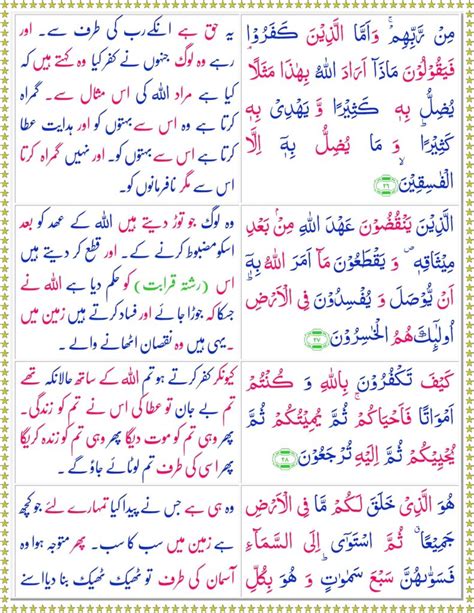 مِنْ رَّبِّهِمْ ۚ وَاَمَّا الَّذِيْنَ كَفَرُوْا
فَيَقُوْلُوْنَ مَاذَآ اَرَادَ اللّٰهُ بِهٰذَا مَثَلًا
يُضِلُّ بِهٖ كَثِيْرًا وَّ يَهْدِيْ بِهٖ
كَثِيْرًا ؕ وَ مَا يُضِلُّ بِهٖۤ اِلَّا
الْفٰسِقِيْنَ ۙ ۲۶
یہ حق ہے انکے رب کی طرف سے۔ اور
رہے وہ لوگ جنہوں نے کفر کیا وہ کہتے ہیں
کیا ہے مراد اللہ کی اس مثال سے۔ گمراہ
کرتا ہے اس سے بہتوں کو۔ اور ہدایت عطا
کرتا ہے اس سے بہتوں کو۔ اور نہیں گمراہ کرتا
اس سے مگر نافرمانوں کو۔
الَّذِيْنَ يَنْقُضُوْنَ عَهْدَ اللّٰهِ مِنْۢ بَعْدِ
مِيْثَاقِهٖ ۪ وَ يَقْطَعُوْنَ مَاۤ اَمَرَ اللّٰهُ بِهٖۤ
اَنْ يُّوْصَلَ وَ يُفْسِدُوْنَ فِي الْاَرْضِ ؕ
اُولٰٓىِٕكَ هُمُ الْخٰسِرُوْنَ ۲۷
وہ لوگ جو توڑ دیتے ہیں اللہ کے عہد کو بعد
اسکو مضبوط کرنے کے۔ اور قطع کر دیتے ہیں
اس (رشتہ قرابت) کو حکم دیا ہے اللہ نے
جسکا کہ جوڑا جائے اور فساد کرتے ہیں زمین میں
۔ یہی ہیں وہ نقصان اٹھانے والے۔
كَيْفَ تَكْفُرُوْنَ بِاللّٰهِ وَ كُنْتُمْ
اَمْوَاتًا فَاَحْيَاكُمْ ۚ ثُمَّ يُمِيْتُكُمْ ثُمَّ
يُحْيِيْكُمْ ثُمَّ اِلَيْهِ تُرْجَعُوْنَ ۲۸
کیونکر کفر کرتے ہو تم اللہ کے ساتھ حالانکہ تھے
تم بے جان تو عطا کی اس نے تم کو زندگی۔
پھر وہی تم کو موت دیگا پھر وہی تم کو زندہ کریگا
پھر اسی کی طرف تم لوٹائے جاؤ گے۔
هُوَ الَّذِيْ خَلَقَ لَكُمْ مَّا فِي الْاَرْضِ
جَمِيْعًا ٭ ثُمَّ اسْتَوٰۤى اِلَى السَّمَآءِ
فَسَوّٰىهُنَّ سَبْعَ سَمٰوٰتٍ ؕ وَ هُوَ بِكُلِّ
وہ ہی ہے جس نے پیدا کیا تمہارے لئے جو کچھ
ہے زمین میں سب کا سب۔ پھر متوجہ ہوا وہ
آسمان کی طرف تو ٹھیک ٹھیک بنا دیا اسنے